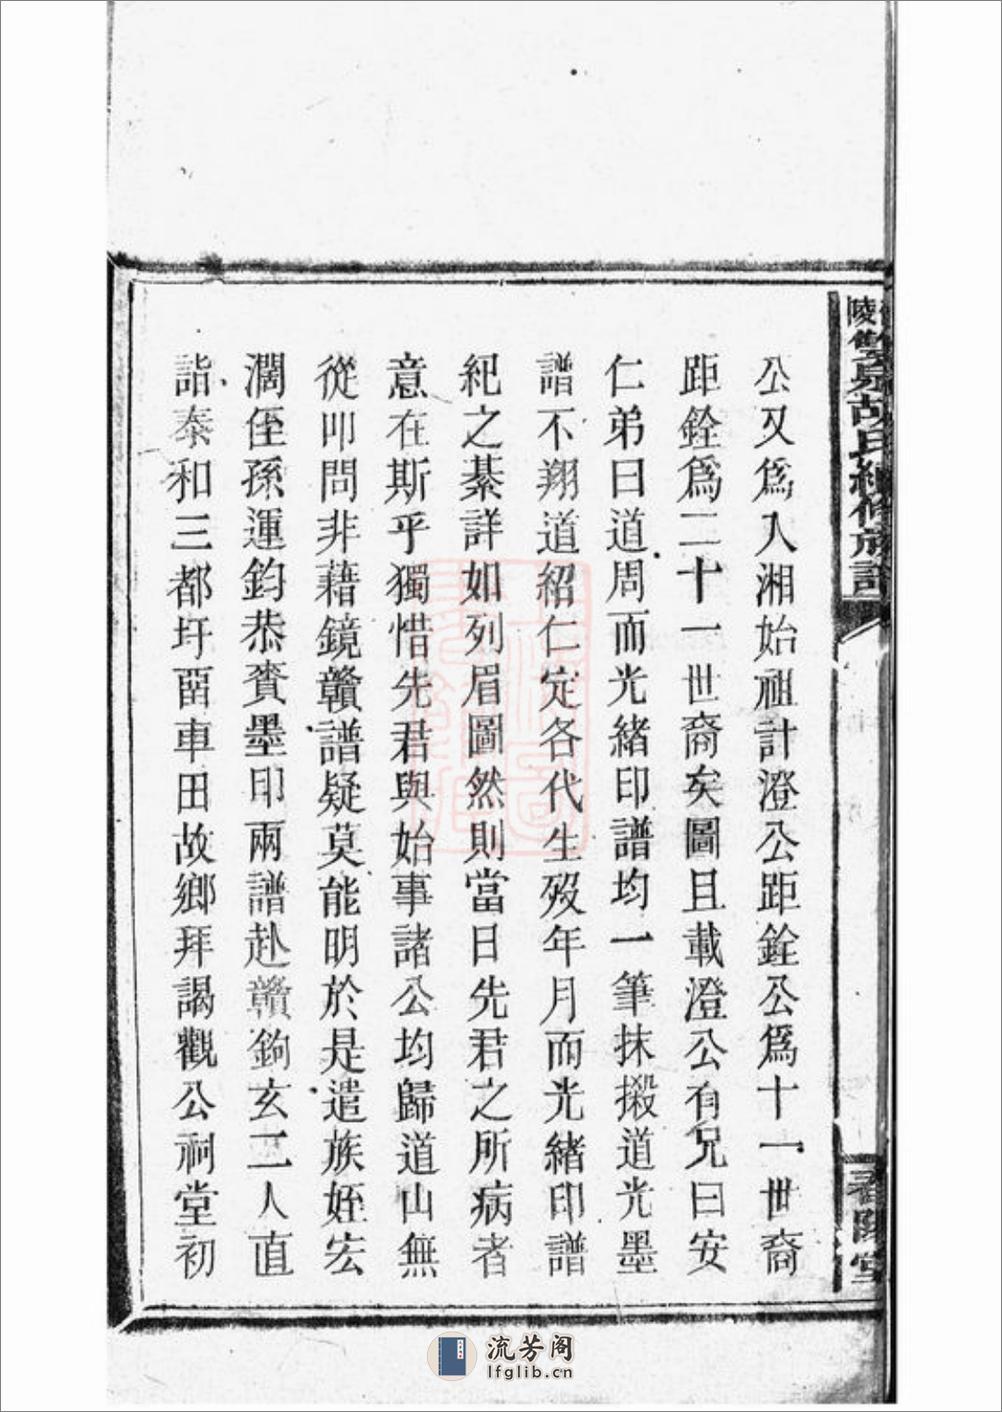 公又爲入湘始祖計澄公距銓公爲十一世裔
距銓爲二十一世裔矣圖且載澄公有兄曰安
仁弟曰道周而光緒印譜均一筆抹摋道光墨
譜不翔道紹仁定各代生歿年月而光緒印譜
紀之綦詳如列眉圖然則當日先君之所病者
意在斯乎獨惜先君與始事諸公均歸道山無
從叩問非藉鏡贛譜疑莫能明於是遣族姪宏
濶侄孫運鈞恭賫墨印兩譜赴贛鉤玄二人直
詣泰和三都圩畱車田故鄉拜謁觀公祠堂初
陵雙泉胡氏續修族譜
流芳阁
lfglib.cn